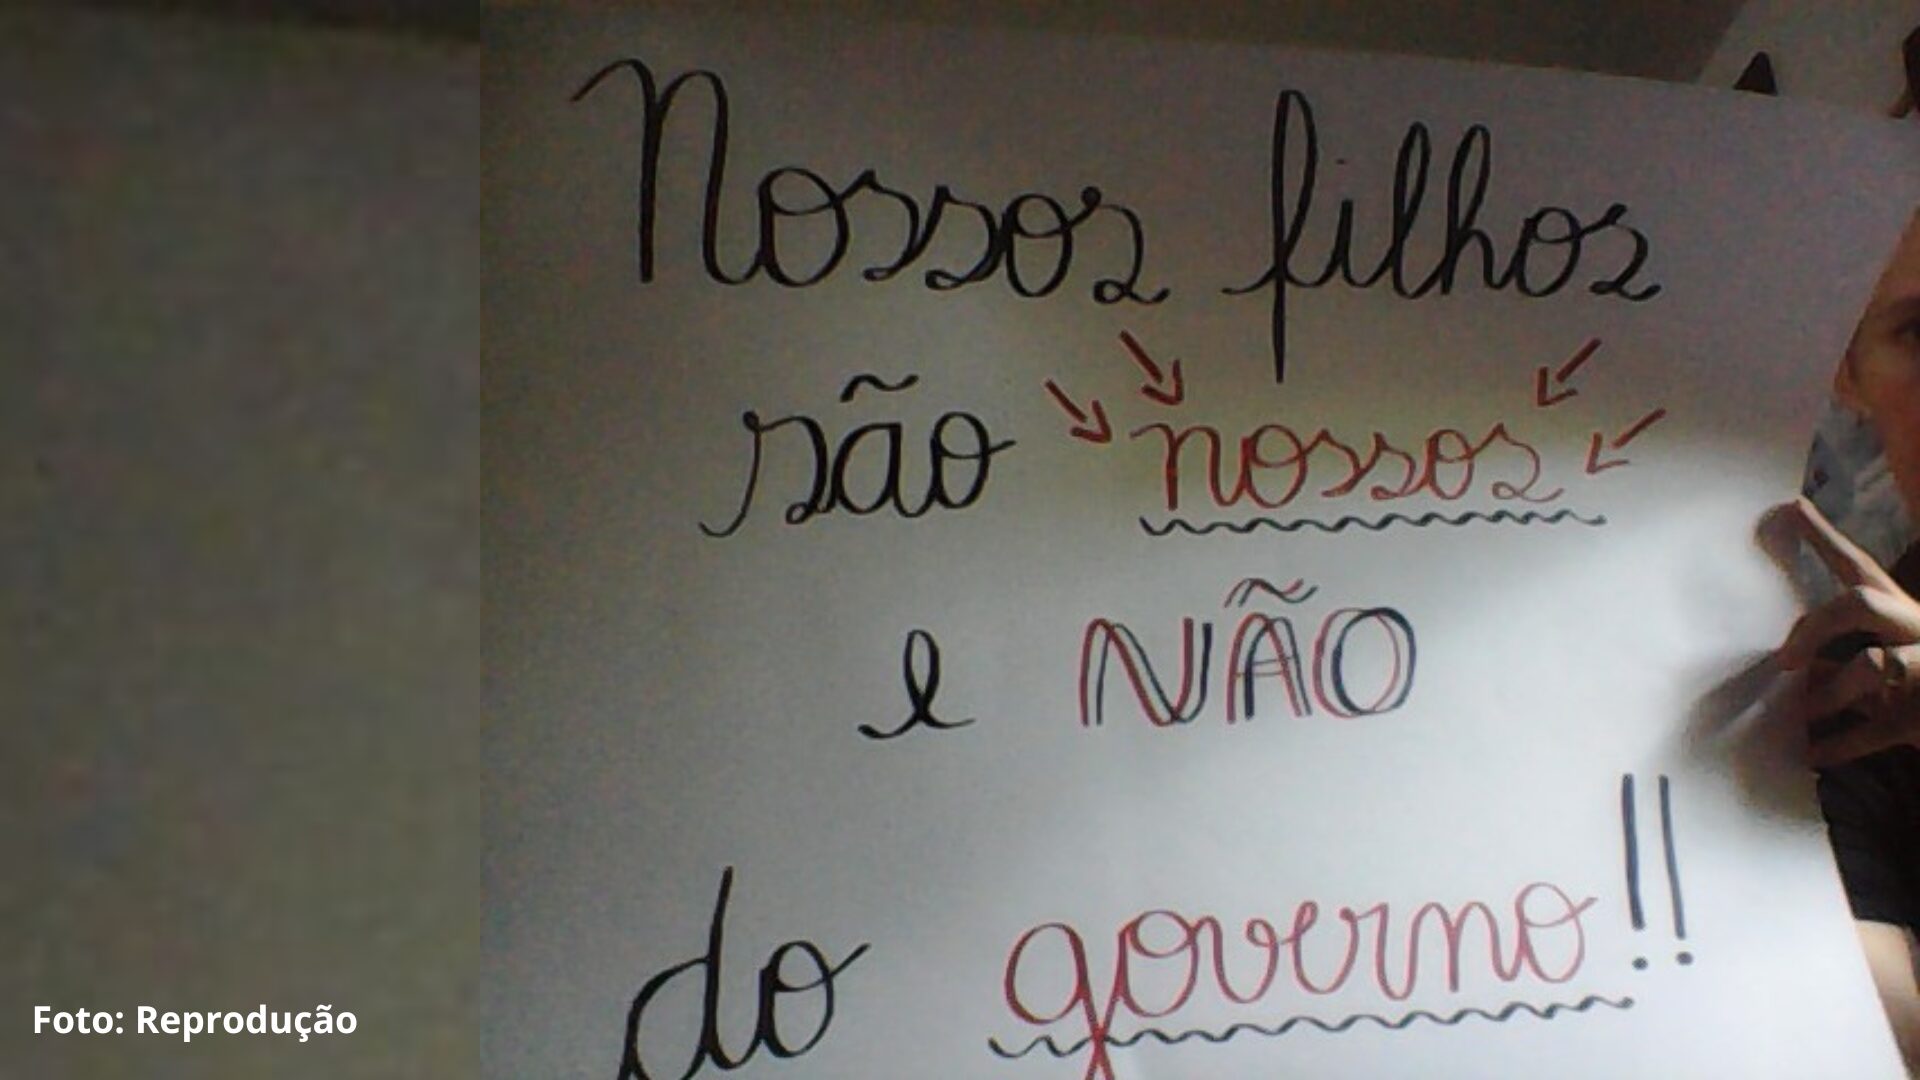 Nossos filhos
são nossos
e NÃO
do governo!!
Foto: Reprodução